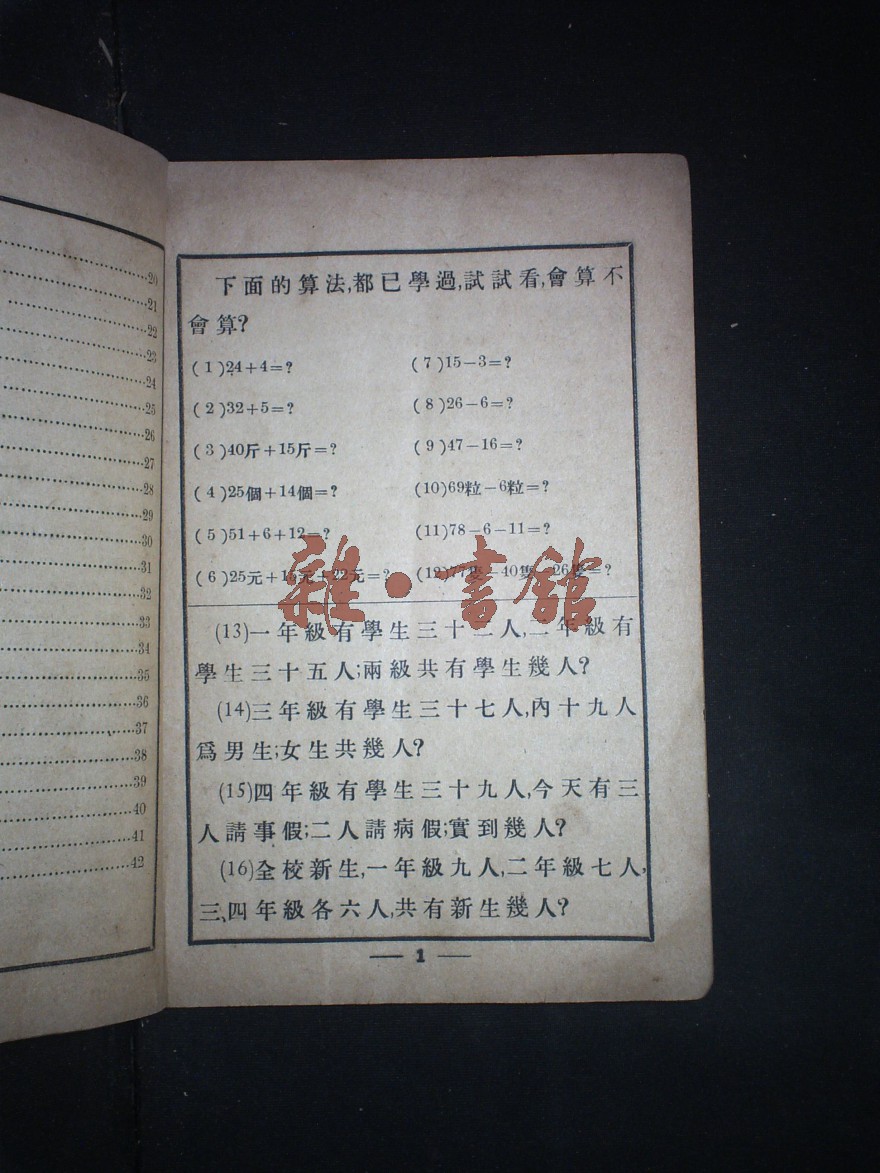 20
21
22
23
24
25
26
27
28
29
30
31
32
33
34
35
36
37
38
39
40
41
42
下面的算法,都已學過,試試看,會算不
會算?
(1)24+4=?
(2)32+5=?
(3)40斤+15斤=?
(4)25個+14個=?
(5)51+6+12=?
(6)25元+15元+22元=?
(7)15-3=?
(8)26-6=?
(9)47-16=?
(10)69粒-6粒=?
(11)78-6-11=?
(12)77隻-40隻-26隻=?
雜·書館
(13)一年級有學生三十二人,二年級有
學生三十五人;兩級共有學生幾人?
(14)三年級有學生三十七人,內十九人
爲男生;女生共幾人?
(15)四年級有學生三十九人,今天有三
人請事假;二人請病假;實到幾人?
(16)全校新生,一年級九人,二年級七人,
三、四年級各六人,共有新生幾人?
— 1 —